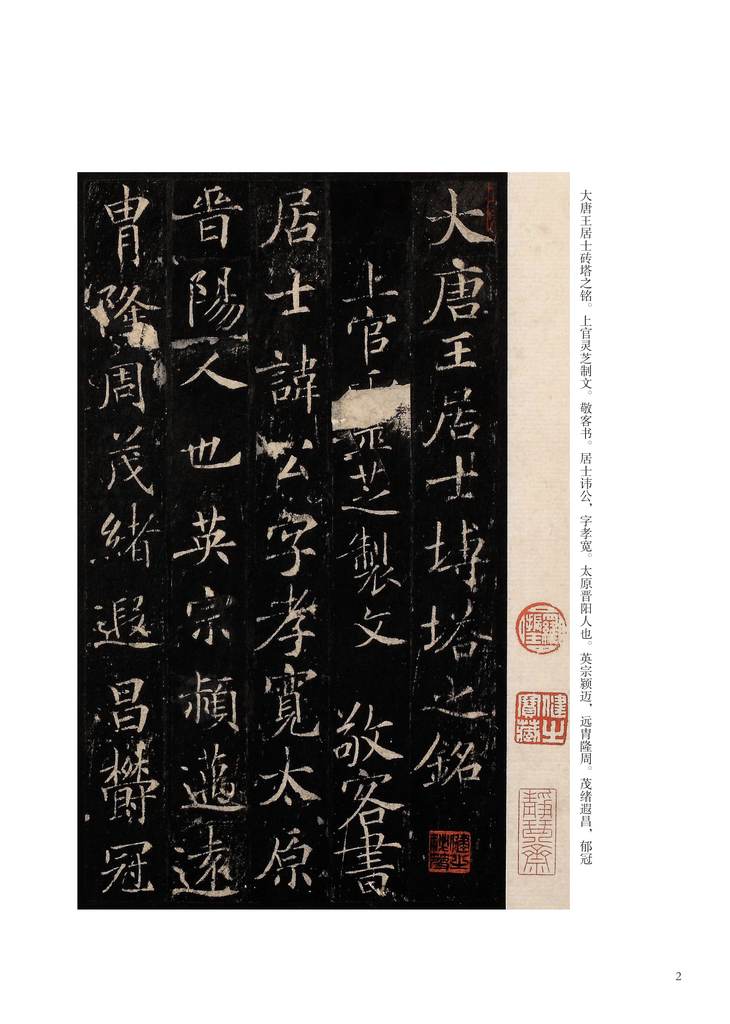 大唐王居士砖塔之铭。上官灵芝制文。敬客书。居士讳公，字孝宽。太原晋阳人也。英宗颖迈，远胄隆周。茂绪遐昌，郁冠
大唐王居士塼塔之銘
上官靈芝製文 敬客書
居士諱公字孝寬太原
晉陽人也英宗穎邁遠
胄隆周茂緒遐昌欝冠
2